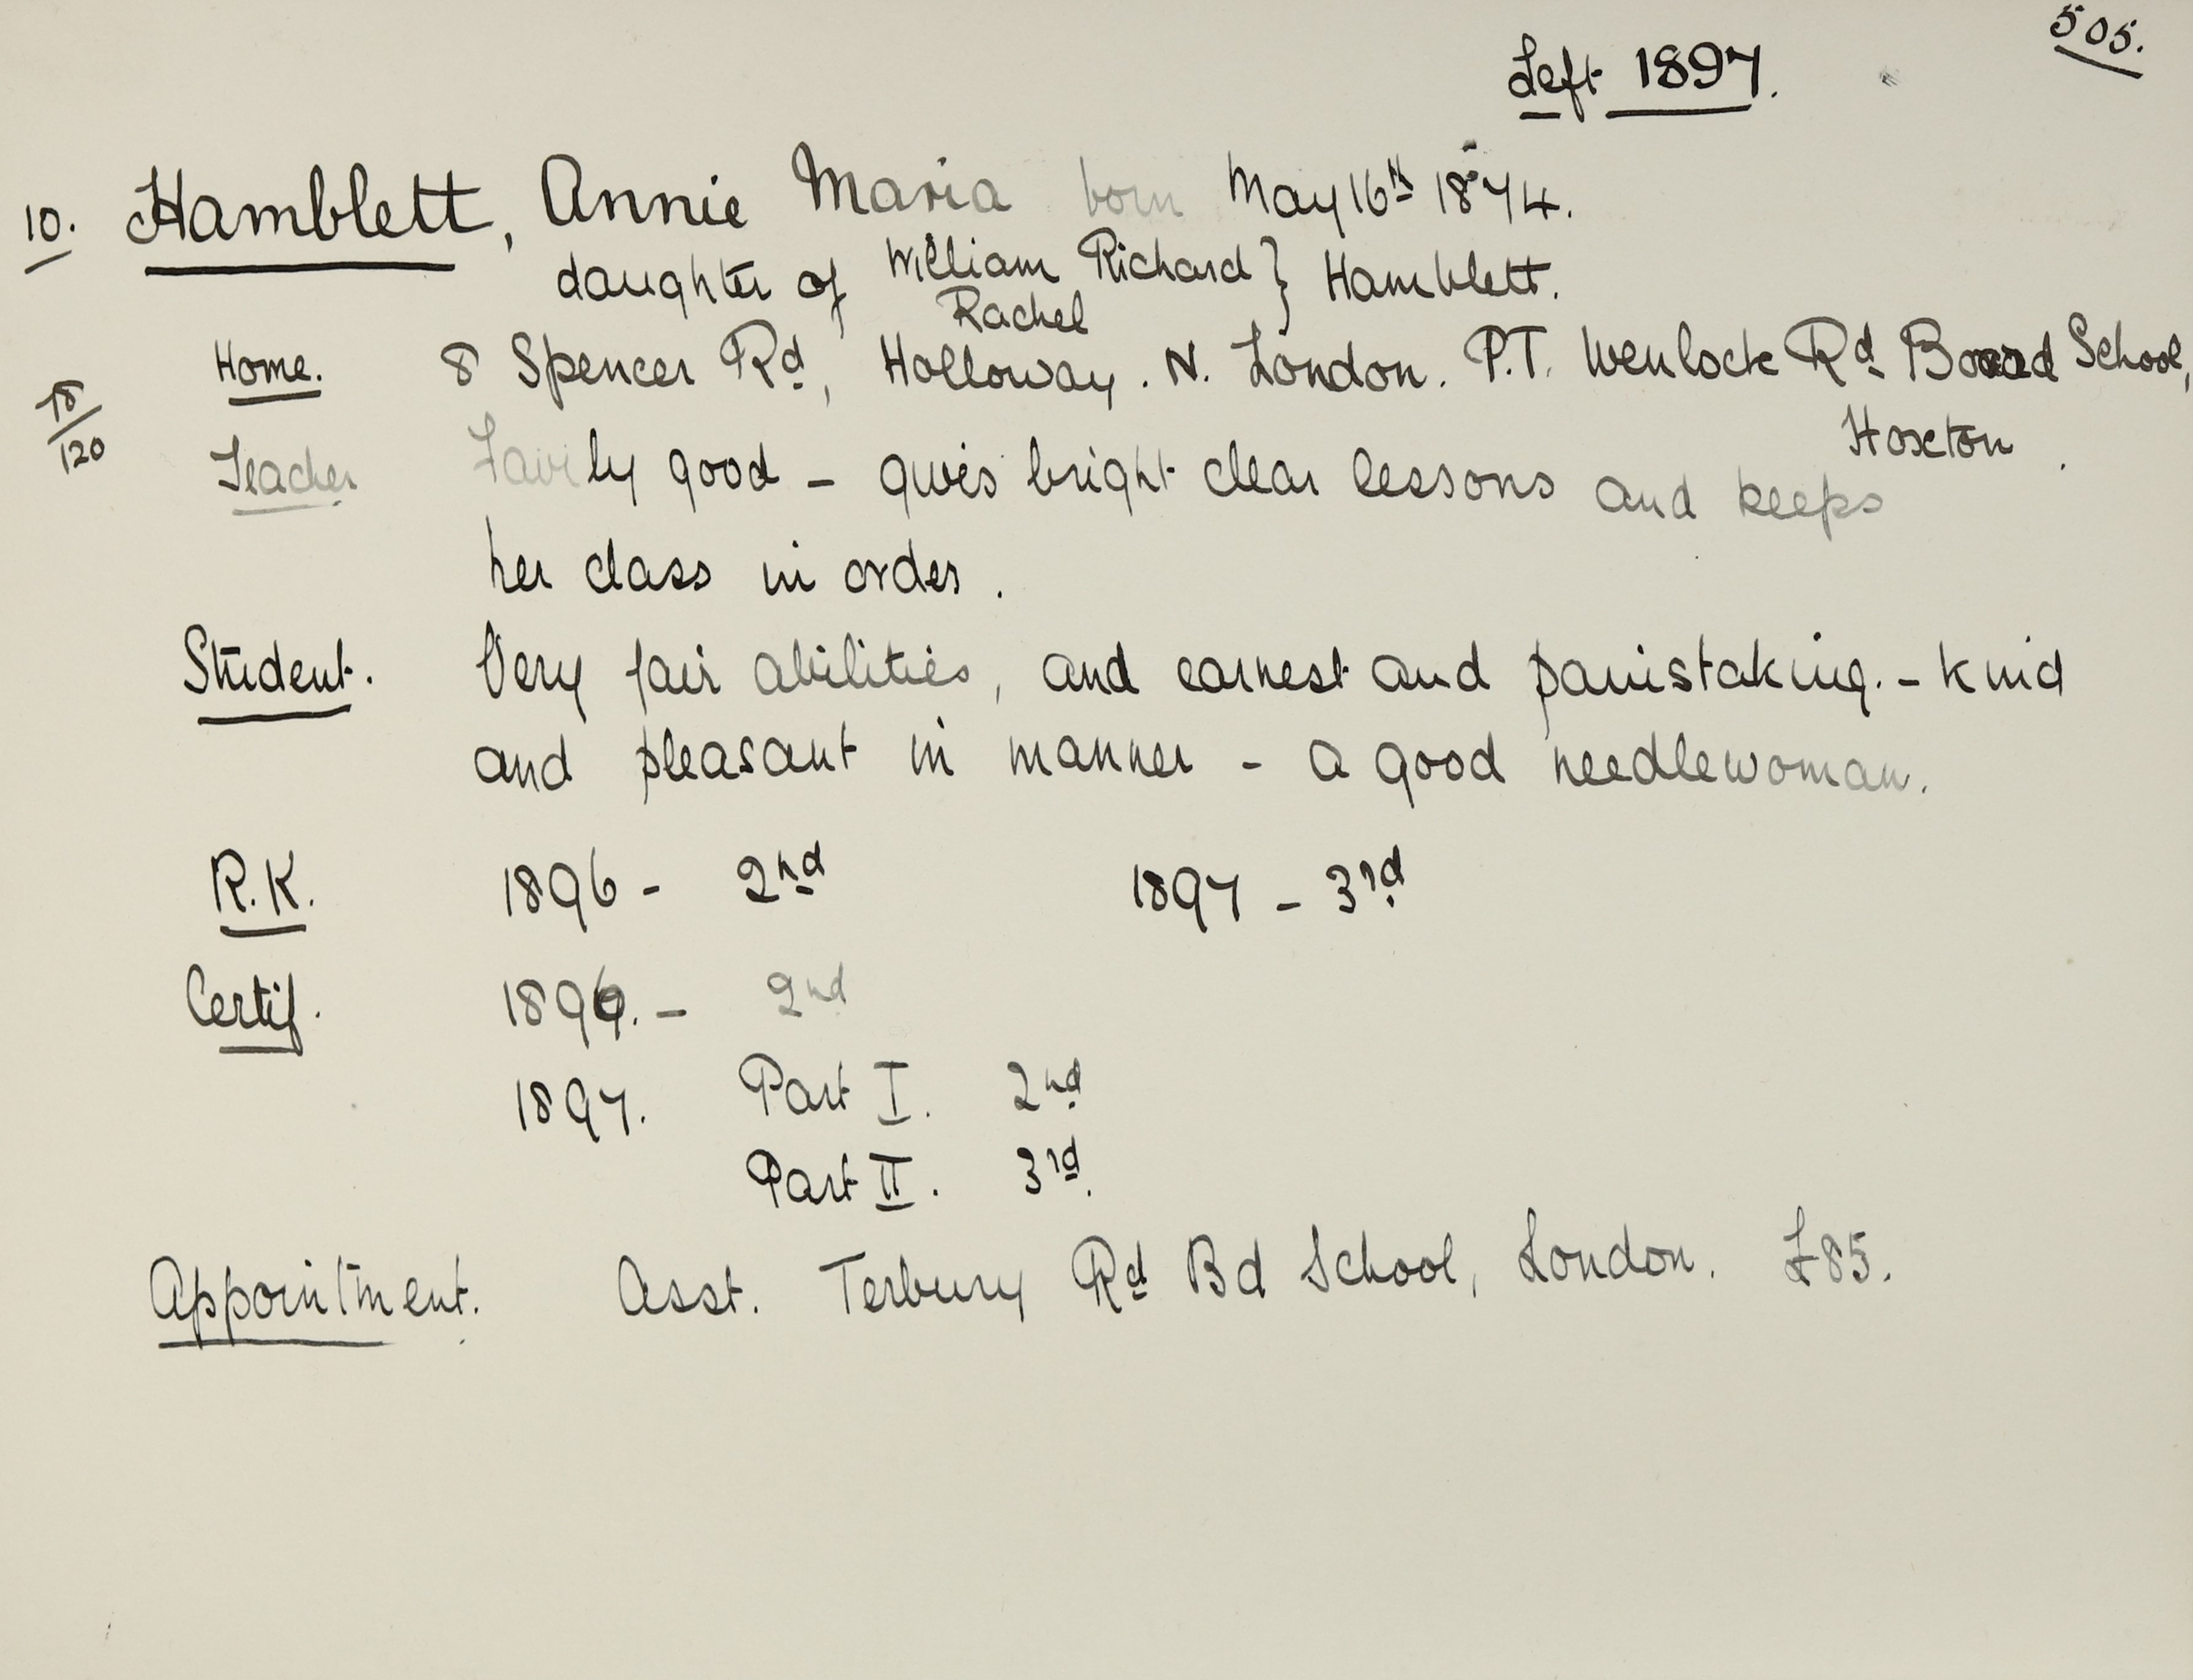 505.
Left 1897.
10. Hamblett, Annie Maria born May 16th 1874.
daughter of William Richard } Hamblett.
Rachel
Home. 8 Spencer Rd, Holloway. N. London. P.T. Wenlock Rd Board School,
Hoxton.
18/120
Teacher Fairly good - gives bright clear lessons and keeps
her class in order.
Student. Very fair abilities, and earnest and painstaking. - kind
and pleasant in manner - a good needlewoman.
R.K. 1896 - 2nd 1897 - 3rd
Certif. 1896. - 2nd
1897. Part I. 2nd
Part II. 3rd.
Appointment. Asst. Terbury Rd Bd School, London. £85.